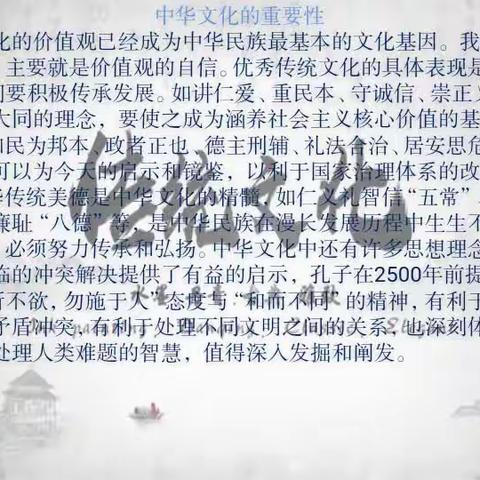 中华文化的重要性
化的价值观已经成为中华民族最基本的文化基因。我
主要就是价值观的自信。优秀传统文化的具体表现是
们要积极传承发展。如讲仁爱、重民本、守诚信、崇正义
大同的理念，要使之成为涵养社会主义核心价值的基
和民为邦本、政者正也、德主刑辅、礼法合治、居安思危
可以为今天的启示和镜鉴，以利于国家治理体系的改
传统美德是中华文化的精髓，如仁义礼智信“五常”
廉耻“八德”等，是中华民族在漫长发展历程中生生不
必须努力传承和弘扬。中华文化中还有许多思想理念
临的冲突解决提供了有益的启示，孔子在2500年前提
所不欲，勿施于人”态度与“和而不同”的精神，有利于
矛盾冲突，有利于处理不同文明之间的关系，也深刻体
处理人类难题的智慧，值得深入发掘和阐发。
传统文化